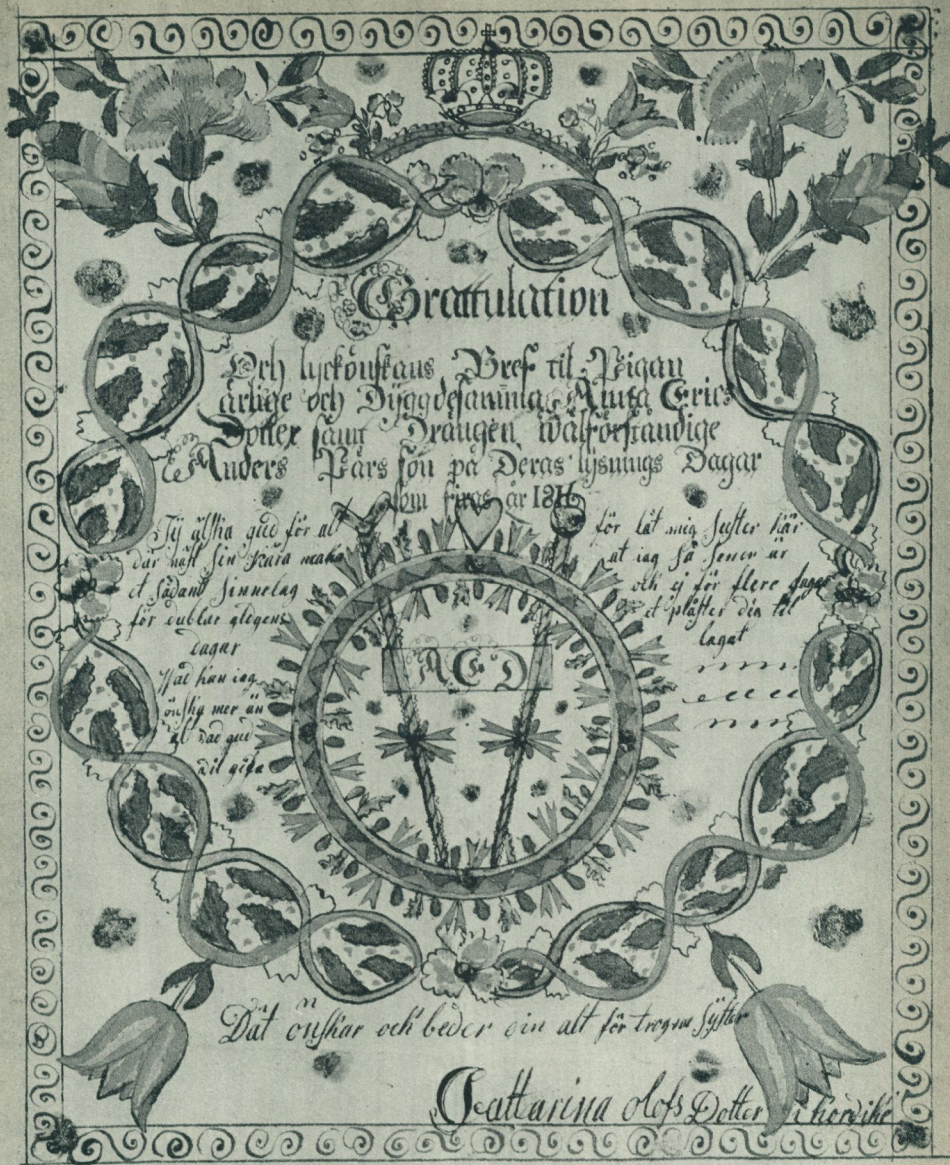 Grattulation
Och lyckönskans Bref til Pigan
ärlige och Dÿggdesamma Anita Erics
Dotter samt Drängen wälförståndige
Anders Pärs son på Deras lysnings Dagar
som firas år 1816
Jej älska gud för al
där näst sin kära maka
et sådant sinnelag
för dublar glägens
dagar
Vad kan iag
önska mer än
al vad gud
vil gifva
för låt mig syster kär
at iag så
och ej för flere
et pläster dig til
lagat
A E D
Dät önskar och beder din alt för trogna syster
Cattarina olofs Dotter i